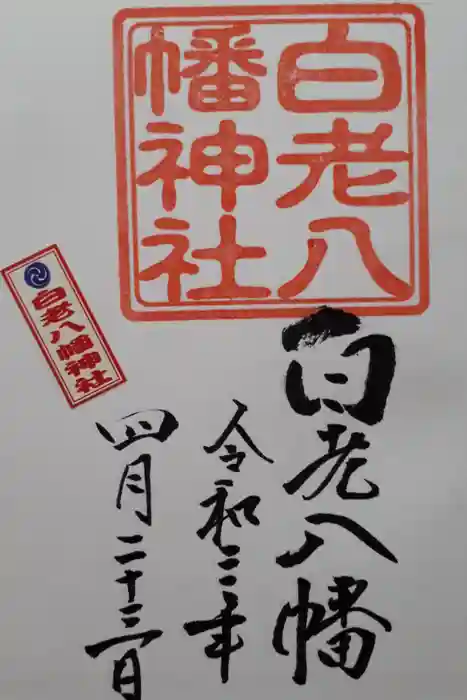 白老八
幡神社
白老八幡
令和三年
四月二十三日
白老八幡神社